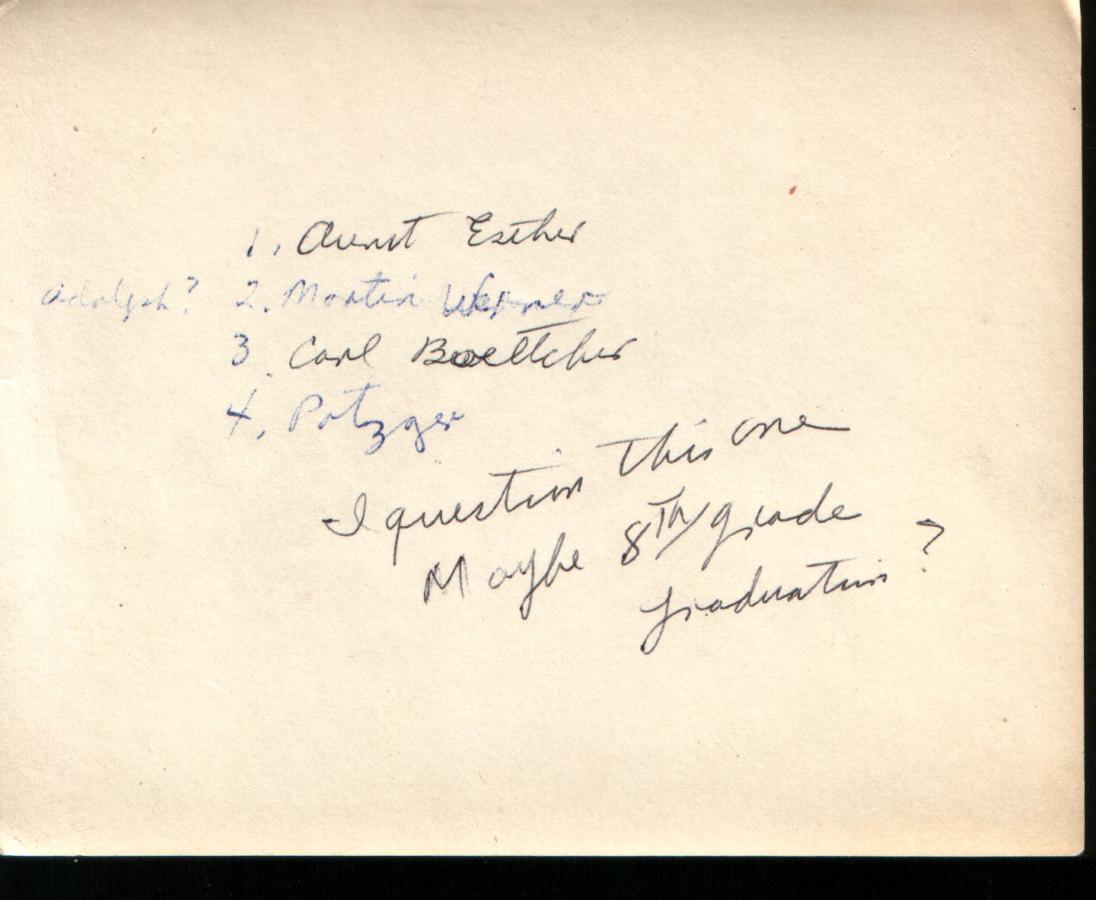 1. Aunt Esther
Adolph? 2. Martin Werner
3. Carl Boettcher
4. Potzger
I question this one
Maybe 8TH grade
graduation ?